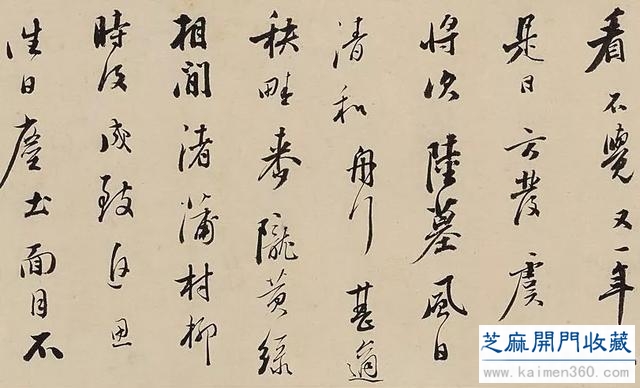 看不覺又一年
是日方發虞
將次陸墓風日
清和舟行甚適
秧畦麥隴黃綠
相間渚蒲村柳
時復成致追思
往日塵土面目不
芝麻開門收藏
www.kaimen360.com